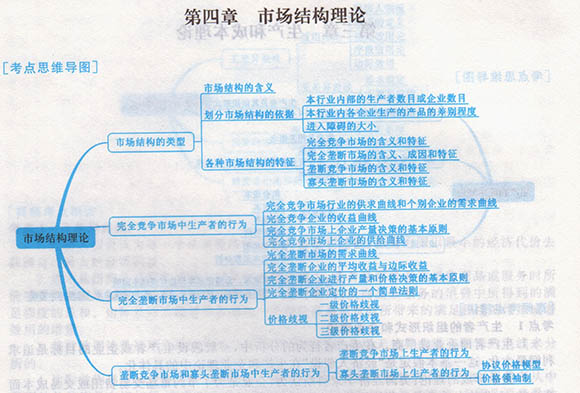 第四章 市场结构理论
[考点思维导图]
市场结构的含义
划分市场结构的依据
本行业内部的生产者数目或企业数目
本行业内各企业生产的产品的差别程度
进入障碍的大小
市场结构的类型
各种市场结构的特征
完全竞争市场的含义和特征
完全垄断市场的含义、成因和特征
垄断竞争市场的含义和特征
寡头垄断市场的含义和特征
市场结构理论
完全竞争市场中生产者的行为
完全竞争市场行业的供求曲线和个别企业的需求曲线
完全竞争企业的收益曲线
完全竞争市场上企业产量决策的基本原则
完全竞争市场上企业的供给曲线
完全垄断市场中生产者的行为
完全垄断市场的需求曲线
完全垄断企业的平均收益与边际收益
完全垄断企业进行产量和价格决策的基本原则
完全垄断企业定价的一个简单法则
价格歧视
一级价格歧视
二级价格歧视
三级价格歧视
垄断竞争市场和寡头垄断市场中生产者的行为
垄断竞争市场上生产者的行为
寡头垄断市场上生产者的行为
协议价格模型
价格领袖制